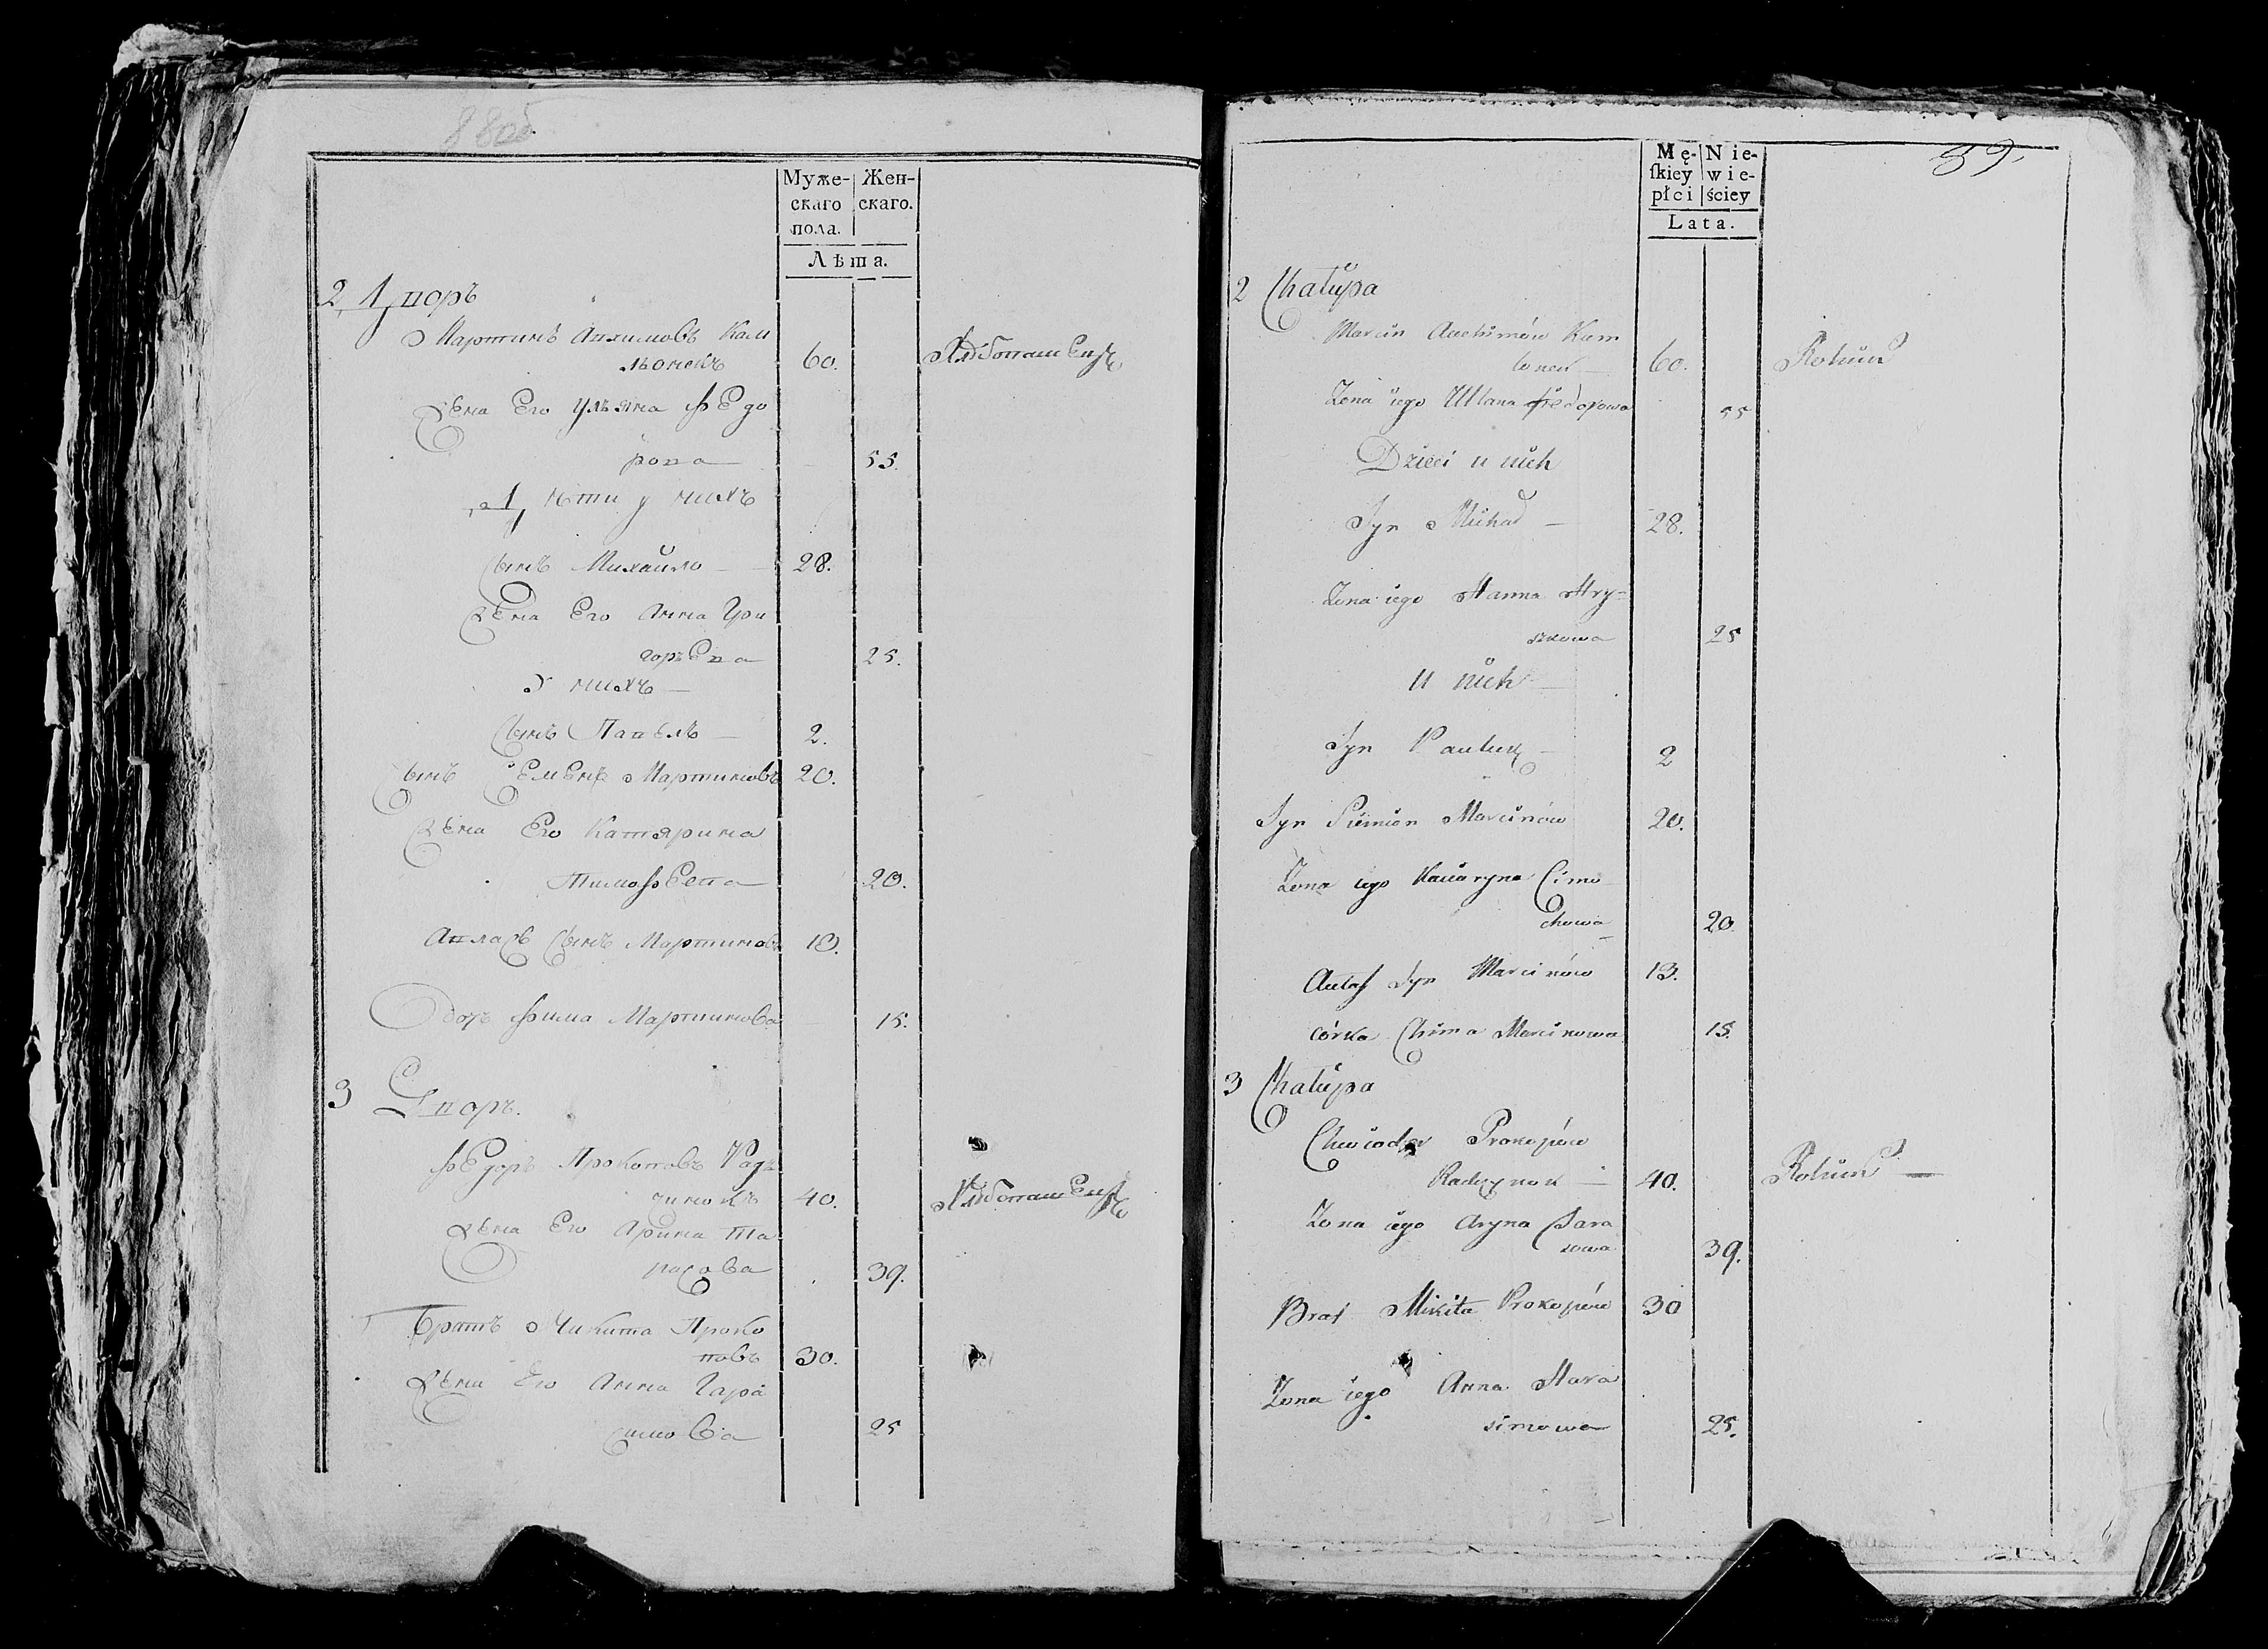 88об
Муже-
скаго
пола.
Жен-
скаго.
Лѣта.
2 Дворъ
Мартинъ Авхимовъ Кам
люнокъ 60. Хлѣбопашецъ
Жена Его Ульяна Федо
рова 55.
Дѣти у нихъ
Сынъ Михайло 28.
Жена Его Анна Гри
горьева 25.
У нихъ
Сынъ Павелъ 2.
Сынъ Семенъ Мартиновъ 20.
Жена Его Катярина
Тимофеева 20.
Авласъ Сынъ Мартиновъ 10.
Дочь Фима Мартинова 15.
3 Дворъ.
Федоръ Прокоповъ Радь
чинокъ 40. Хлѣбопашецъ
Жена Его Арина Та
расова 39.
братъ Микита Проко
повъ 30.
Жена Его Анна Гара
симова 25
89.
Mę-
skiey
płci
Nie-
wie-
ściey
Lata.
2 Chałupa
Marcin Auchimów Kam
lonek 60. Rolnik
Żona iego Ullana Fiedorowa 55
Dzieci u nich
Syn Michał 28.
Żona iego Hanna Hry-
szkowa 25
U nich
Syn Pauluk 2
Syn Siemion Marcinów 20.
Żona iego Kaciaryna Cimo
chowa 20.
Aułas Syn Marcinów 13.
córka Chima Marcinowa 15.
3 Chałupa
Chwiodor Prokopów
Radczynok 40. Rolnik
Żona iego Aryna Tara
sowa 39.
Brat Mikita Prokopów 30
Żona iego Anna Hara
simowa 25.